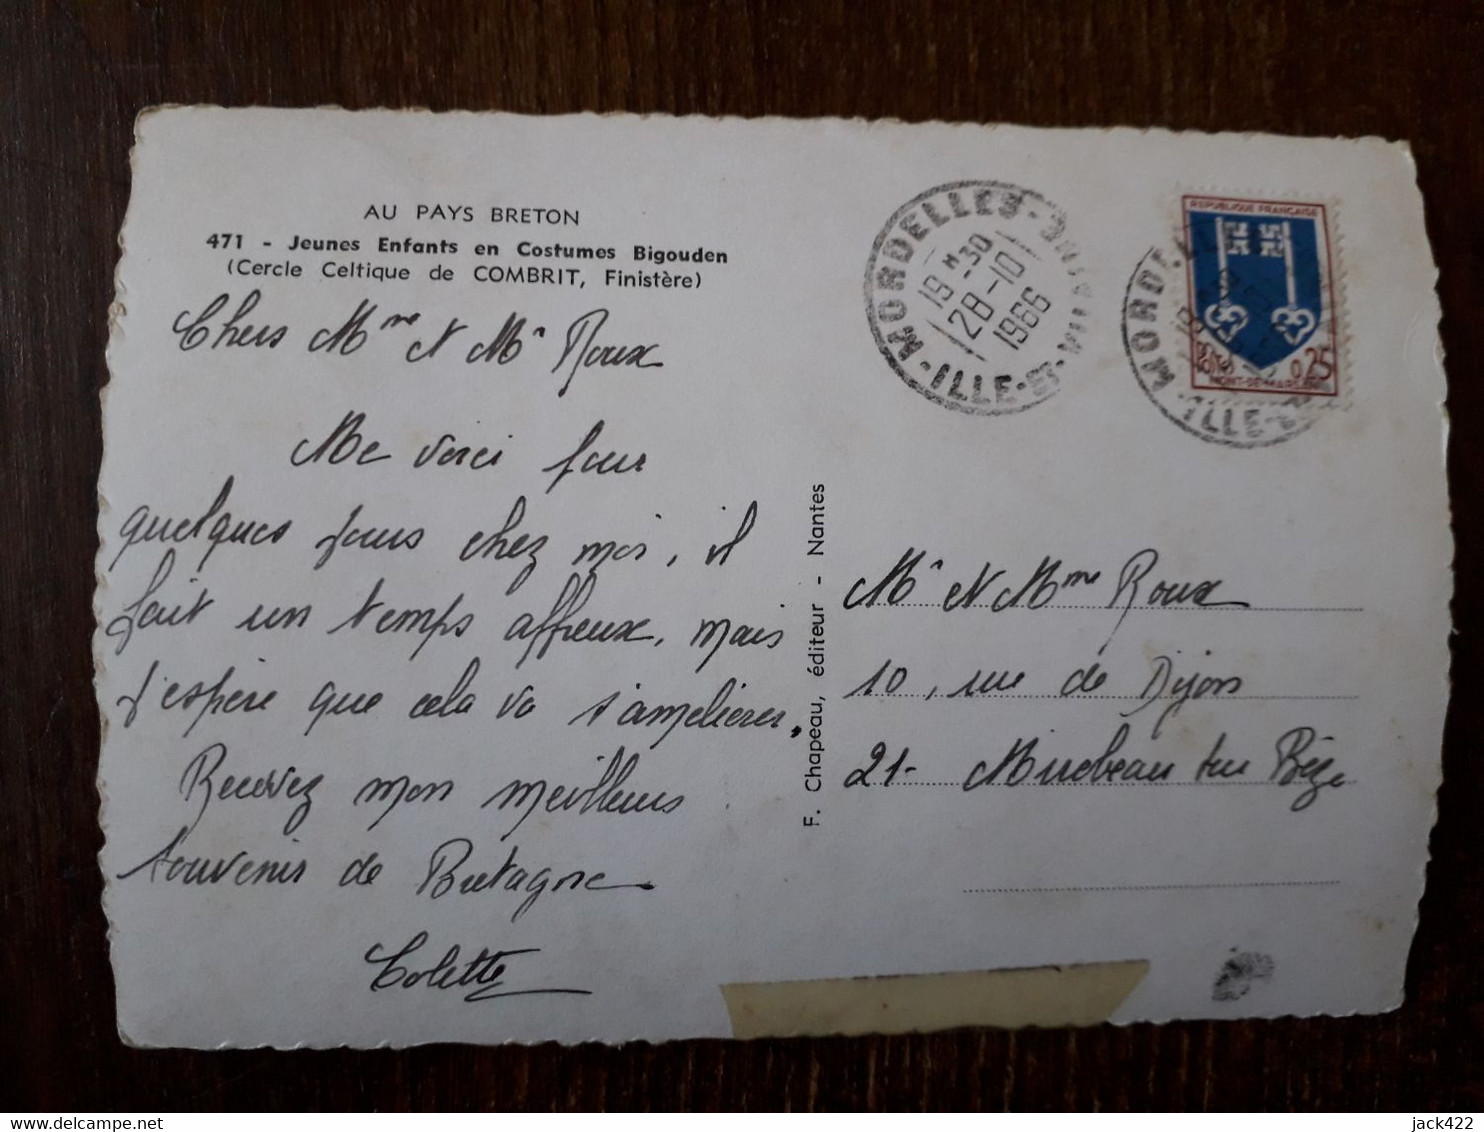 AU PAYS BRETON
471 - Jeunes Enfants en Costumes Bigouden
(Cercle Celtique de COMBRIT, Finistère)
Chers Mme et Mr Roux
Me voici pour
quelques jours chez moi, il
fait un temps affreux, mais
j'espère que cela va s'améliorer.
Recevez mon meilleurs
souvenir de Bretagne
Colette
F. Chapeau, éditeur - Nantes
MORDELLES
19H30
28-10
1966
ILLE-ET-VILAINE
REPUBLIQUE FRANÇAISE
0,25
MONT-DE-MARSAN
MORDELLES
ILLE-E
Mr et Mme Roux
10, rue de Dijon
21- Mirebeau sur Bèze
jack422